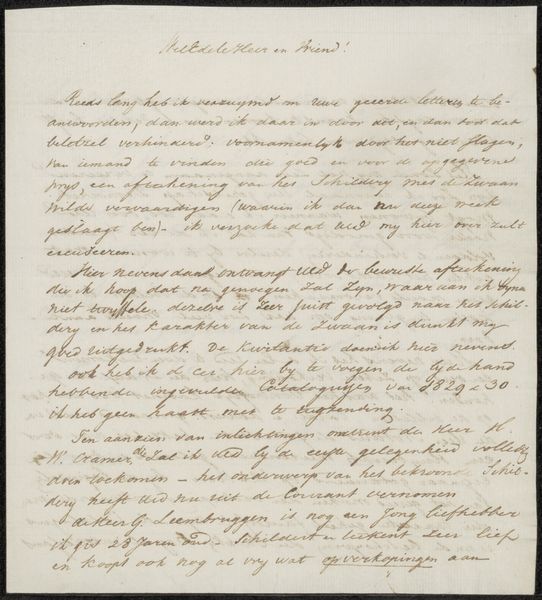 WelEdele Heer en Vriend!
Reeds lang heb ik verzuymd om Uwe geeerde letteren te be-
antwoorden, dan werd ik daar in door dit, en dan door dat
beletzel verhinderd: voornamentlyk door het niet slagen,
van iemand te vinden die goed en voor de opgegevene
prys, een aftekening van het Schildery met de Zwaan
wilde vervaardigen (waarin ik dan nu deeze week
geslaagt ben) - ik verzoeke dat UEd my hier over zult
excuseeren.
Hier nevens dan ontvangt UEd de bewuste aftekening
die ik hoop dat na genoegen zal zyn, waar aan ik byna
niet twyffele. dezelve is zeer juist gevolgd naar het schil-
dery en het karakter van de Zwaan is dunkt my
goed uidgedrukt. De Kwitantie doe ik hier nevens
ook heb ik d eer hier by te voegen de by de hand
hebbende ingevulde Catalogussen van 1829 a 30
ik heb geen haast met te rugzending.
Ten aanzien van inlichtingen omtrent de Heer H.
W. Cramer, zal ik UEd by de eerste gelegenheid volledig
doen toekomen - het onderwerp van het bekroonde Schil-
dery heeft UEd nu uit de Courant vernomen
de Heer G. Leembruggen is nog een Jong liefhebber
ik gis 28 Jaren oud - Schildert en tekent zeer lief
en koopt ook nog al vry wat op verkopingen aan